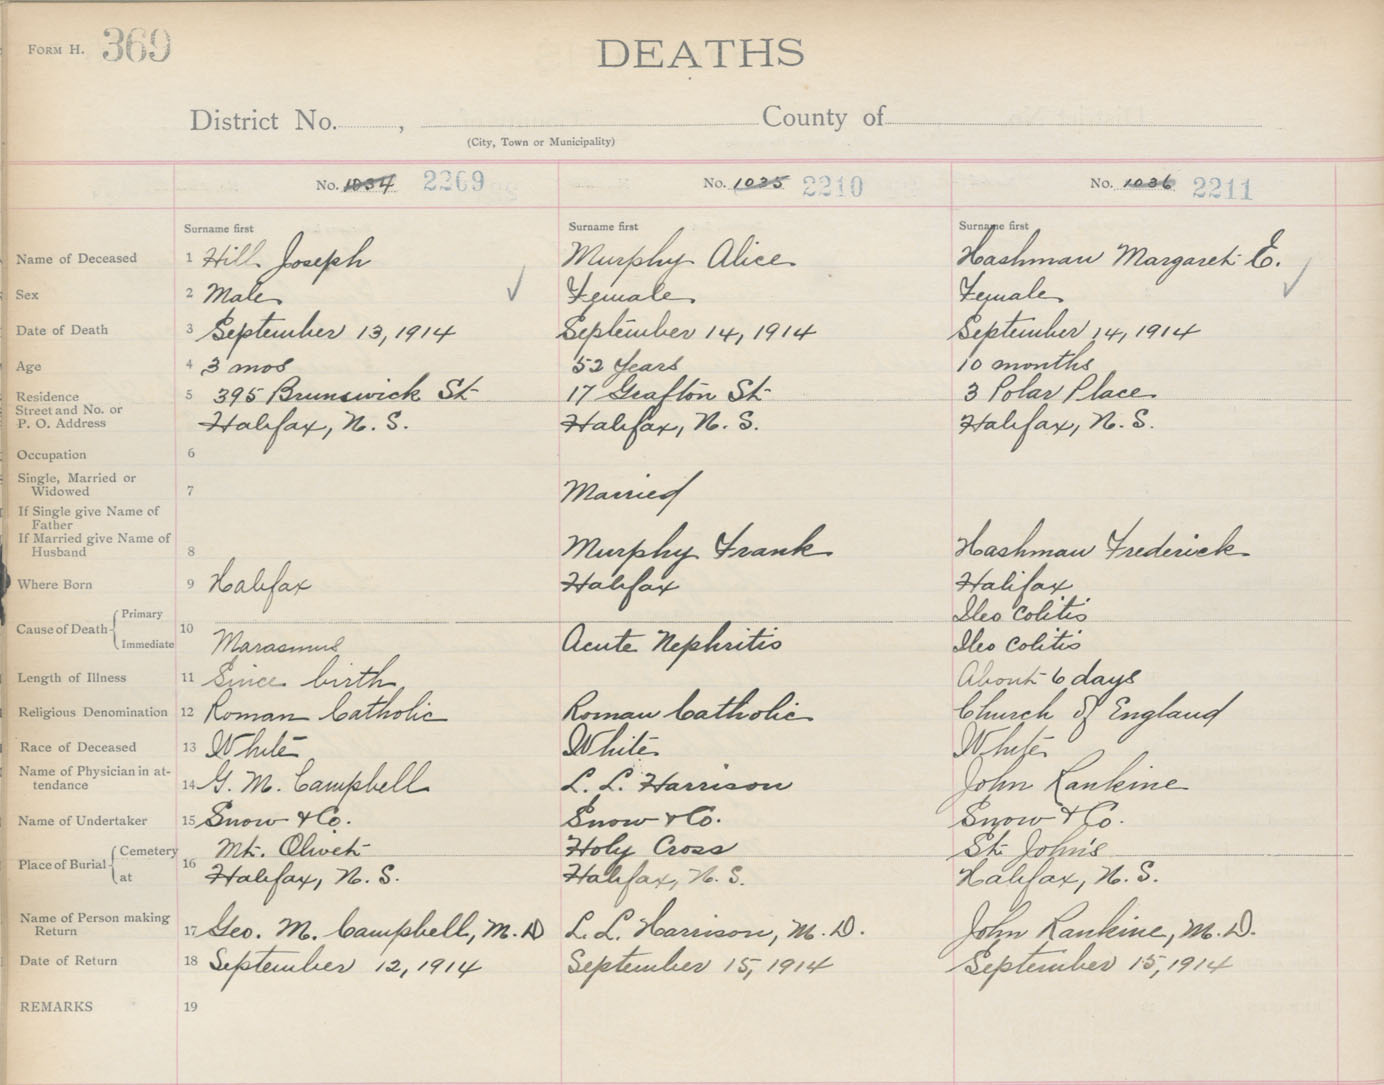 FORM H. 369
DEATHS
District No. , County of
(City, Town or Municipality)
No. 1034 2209 No. 1035 2210 No. 1036 2211
Surname first Surname first Surname first
Name of Deceased 1 Hill Joseph Murphy Alice Hashman Margaret E.
Sex 2 Male Female Female
Date of Death 3 September 13, 1914 September 14, 1914 September 14, 1914
Age 4 3 mos 52 Years 10 months
Residence 5 395 Brunswick St 17 Grafton St 3 Polar Place
Street and No. or
P. O. Address Halifax, N. S. Halifax, N. S. Halifax, N. S.
Occupation 6
Single, Married or
Widowed 7 Married
If Single give Name of
Father
If Married give Name of
Husband 8 Murphy Frank Hashman Frederick
Where Born 9 Halifax Halifax Halifax
Primary Ileo colitis
Cause of Death 10
Immediate Marasmus Acute Nephritis Ileo colitis
Length of Illness 11 Since birth About 6 days
Religious Denomination 12 Roman Catholic Roman Catholic Church of England
Race of Deceased 13 White White White
Name of Physician in at-
tendance 14 G. M. Campbell L. L. Harrison John Rankine
Name of Undertaker 15 Snow & Co. Snow & Co. Snow & Co.
Cemetery Mt. Olivet Holy Cross St. John's
Place of Burial 16
at Halifax, N. S. Halifax, N. S. Halifax, N. S.
Name of Person making
Return 17 Geo. M. Campbell, M. D L. L. Harrison, M. D. John Rankine, M. D.
Date of Return 18 September 12, 1914 September 15, 1914 September 15, 1914
REMARKS 19